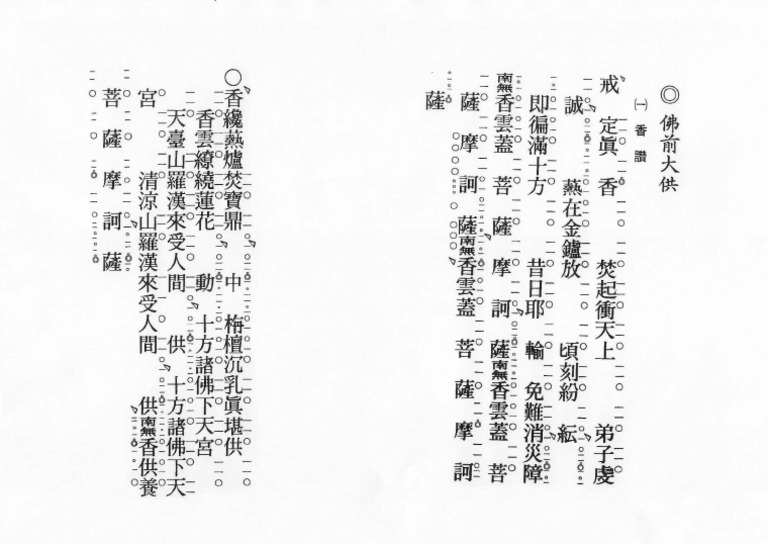 ◎佛前大供
㈠香讚
戒定眞香焚起衝天上弟子虔
誠爇在金鑪放頃刻紛紜
即徧滿十方昔日耶輸免難消災障
南無香雲蓋菩薩摩訶薩南無香雲蓋菩
薩摩訶薩南無香雲蓋菩薩摩訶
薩
〇香纔爇爐焚寶鼎中栴檀沉乳眞堪供
香雲繚繞蓮花動十方諸佛下天宮
天臺山羅漢來受人間供十方諸佛下天
宮清涼山羅漢來受人間供南無香供養
菩薩摩訶薩